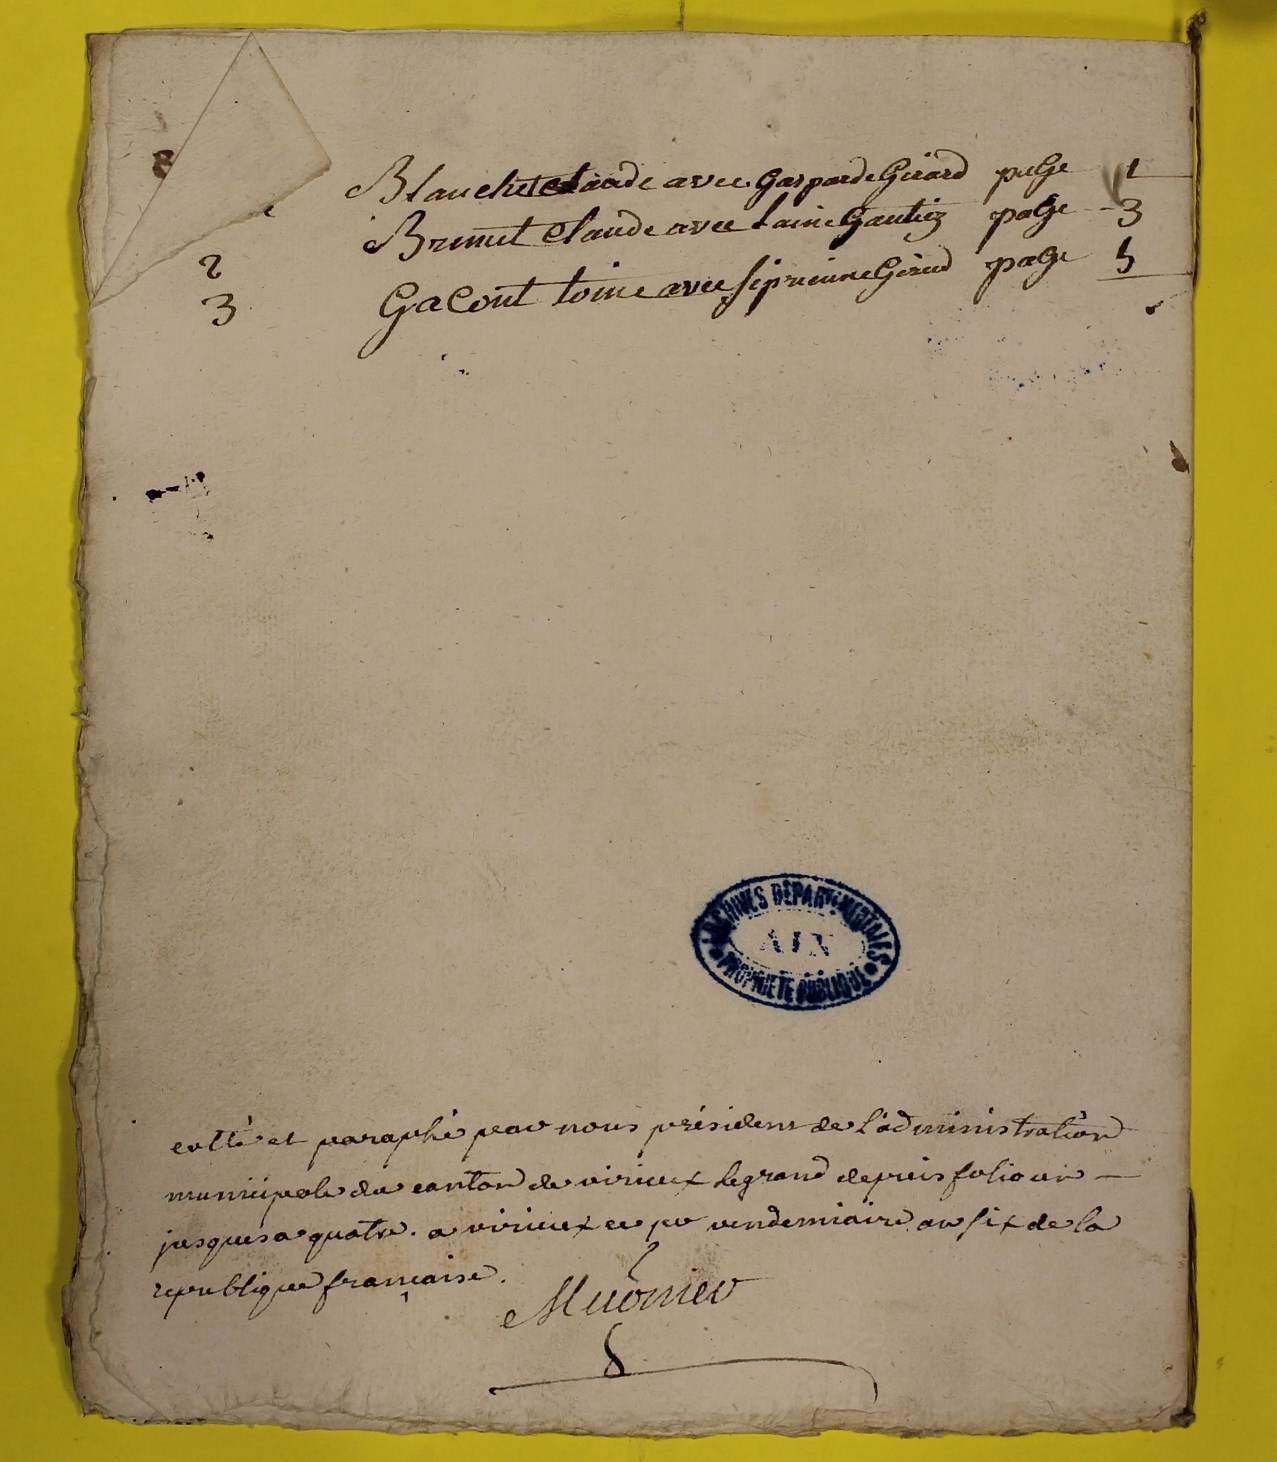 Blanchet Claude avec Gasparde Girard page 1
2 Brunet Claude avec taine Gautiez page 3
3 Gacont toine avec siprienne Girud page 5
ARCHIVES DÉPARTEMENTALES
AIN
PROPRIÉTÉ PUBLIQUE
cotté et paraphé par nous président de l'administration
municipale du canton de virieux legrand depuis folio un
jusques a quatre. a virieux ce pr vendemiaire an six de la
republique française.
Muonier